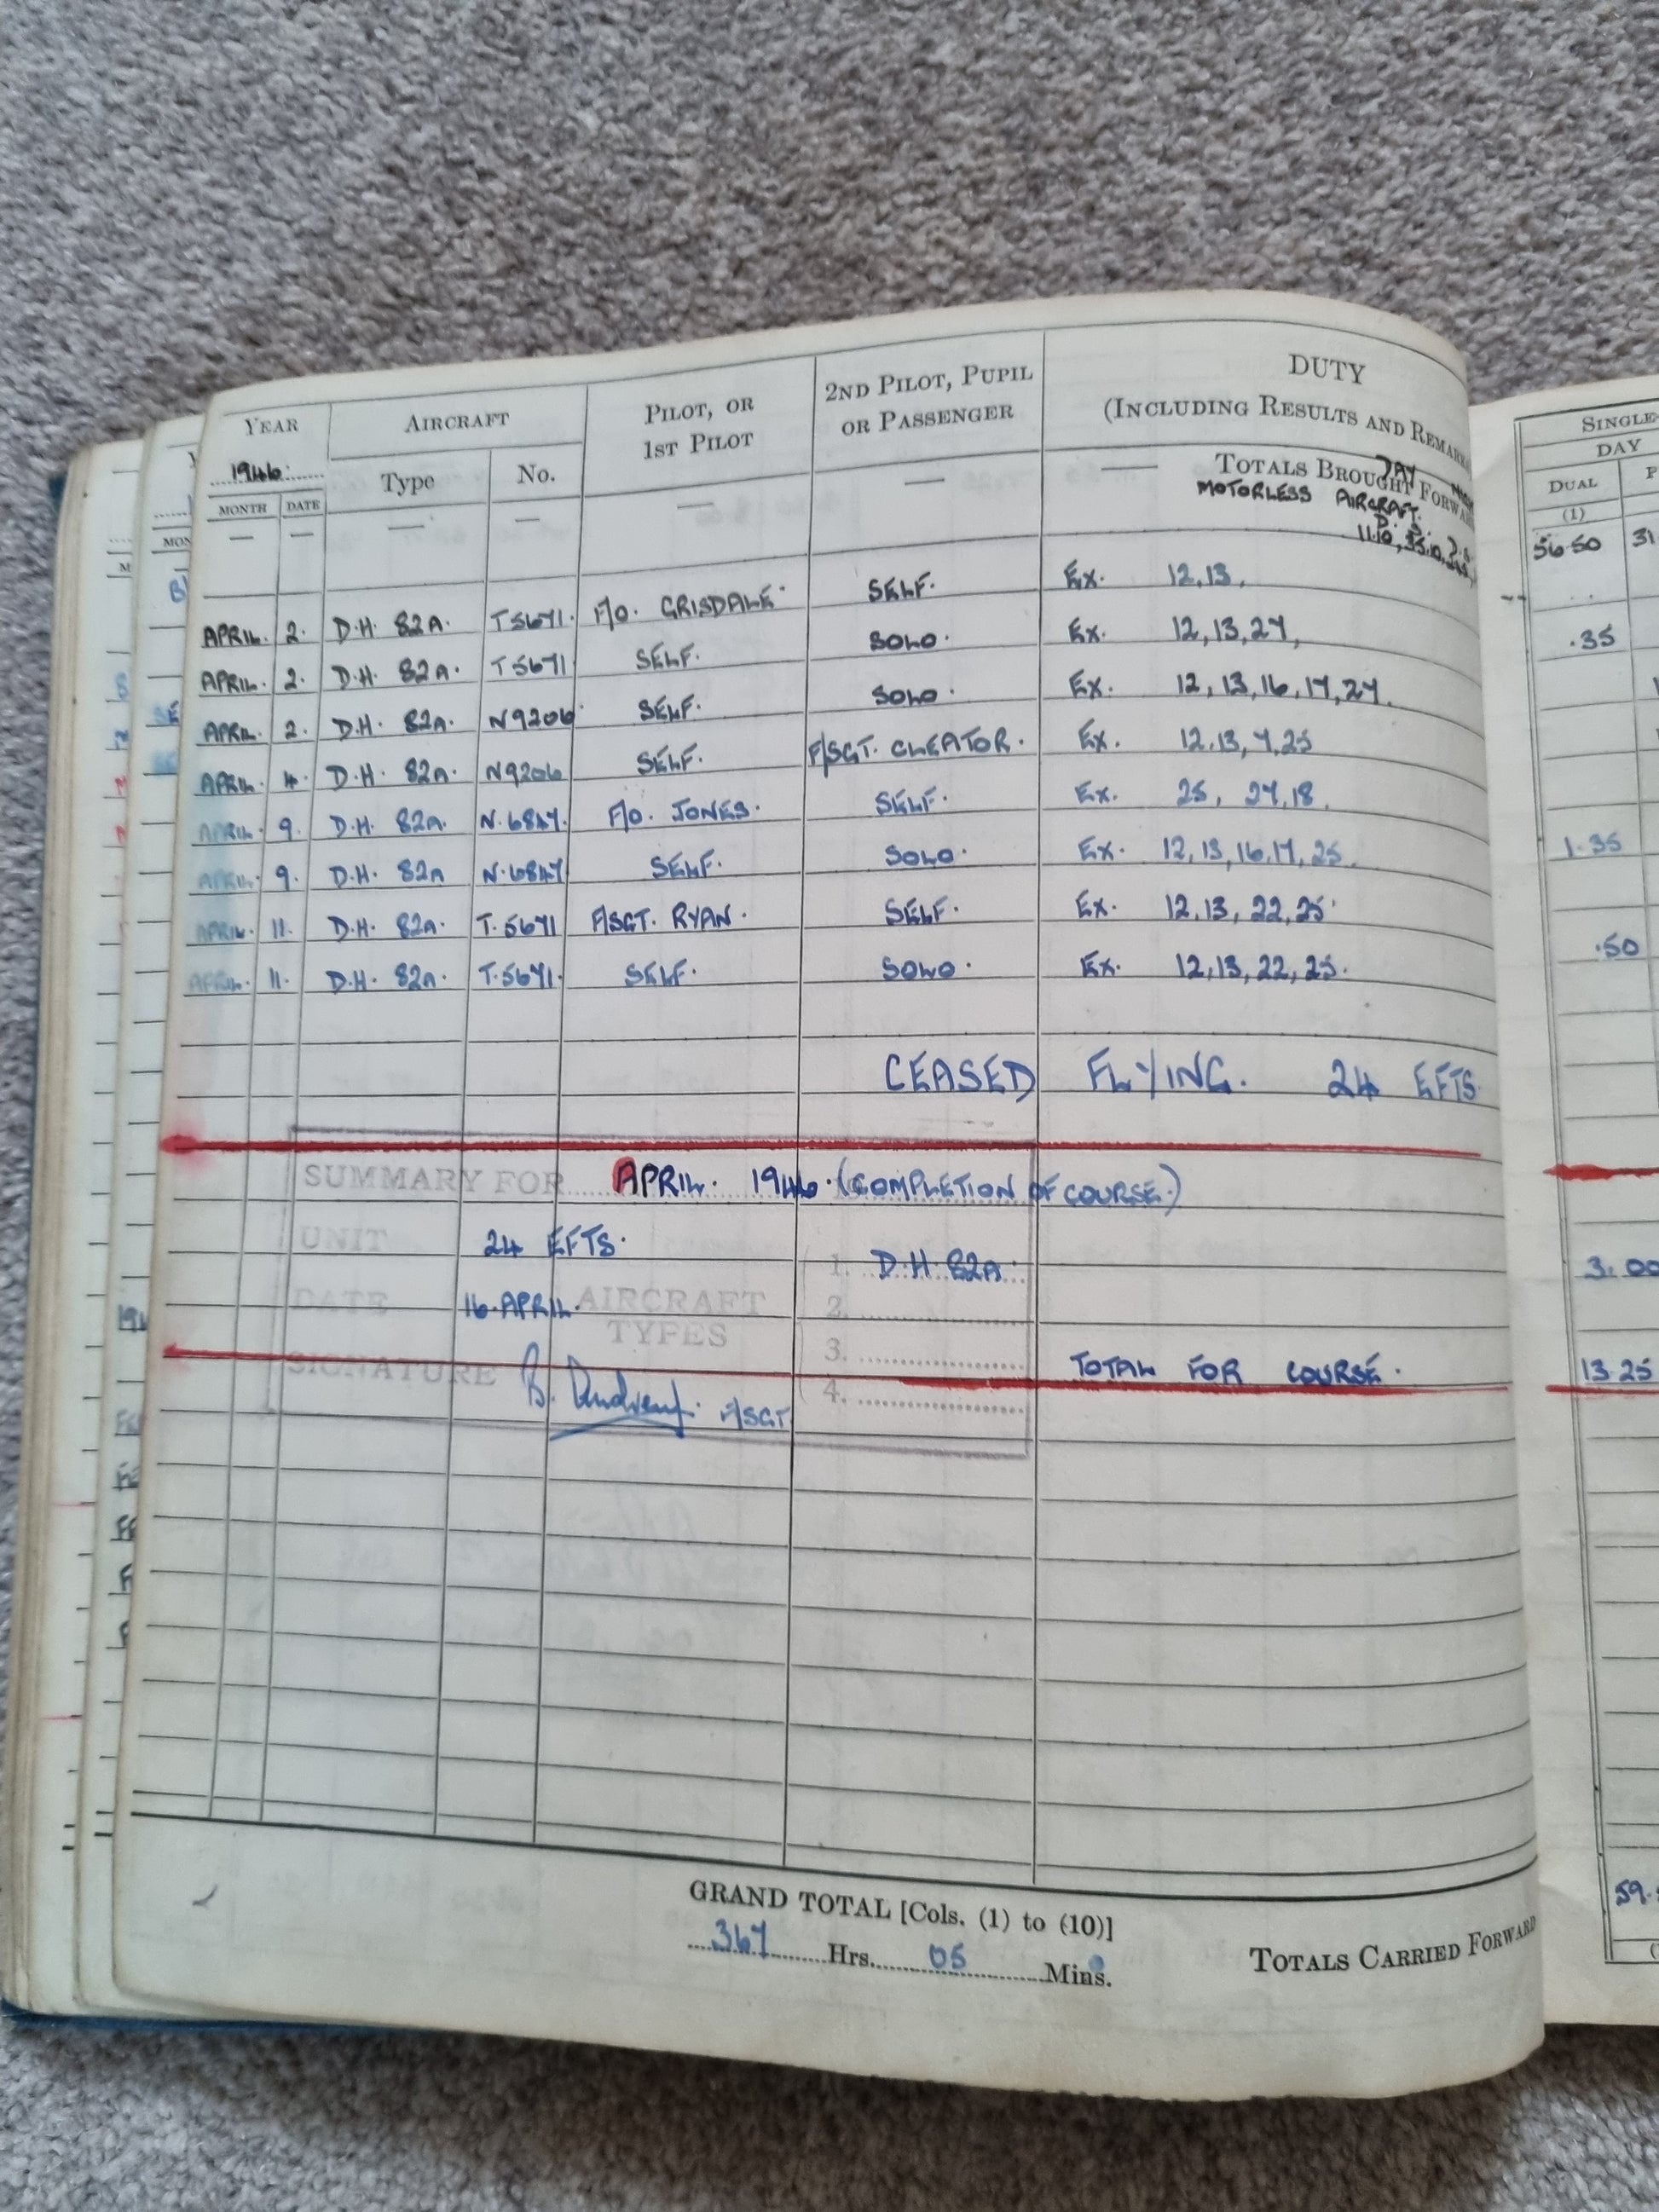 YEAR AIRCRAFT PILOT, OR 1ST PILOT 2ND PILOT, PUPIL OR PASSENGER DUTY (INCLUDING RESULTS AND REMARK
1946. Type No. TOTALS BROUGHT FORWA
MONTH DATE MOTORLESS AIRCRAFT. DAY
D. S.
11.10, 35.10,
APRIL. 2. D.H. 82A. T5671. F/O. GRISDALE. SELF. Ex. 12,13,
APRIL. 2. D.H. 82A. T5671 SELF. SOLO. Ex. 12,13,27,
APRIL. 2. D.H. 82A. N9206 SELF. SOLO. Ex. 12,13,16,17,27.
APRIL. 4. D.H. 82A. N9206 SELF. F/SGT. CLEATOR. Ex. 12.13,7,25
APRIL. 9. D.H. 82A. N.6847. F/O. JONES. SELF. Ex. 25, 27,18.
APRIL. 9. D.H. 82A N.6847 SELF. SOLO. Ex. 12,13,16,17,25.
APRIL. 11. D.H. 82A. T.5671 F/SGT. RYAN. SELF. Ex. 12,13,22,25.
APRIL. 11. D.H. 82A. T.5671. SELF. SOLO. Ex. 12,13,22,25.
CEASED FLYING. 24 EFTS.
SUMMARY FOR APRIL. 1946. (COMPLETION OF COURSE.)
UNIT 24 EFTS. 1. D.H. 82A.
DATE 16.APRIL. AIRCRAFT TYPES 2.
3.
SIGNATURE B. F/SGT 4.
TOTAL FOR COURSE.
GRAND TOTAL [Cols. (1) to (10)]
367 Hrs. 05 Mins.
TOTALS CARRIED FORWARD
SINGLE
DAY
DUAL
(1)
56.50 31
.35
1.35
.50
3.00
13.25
59.